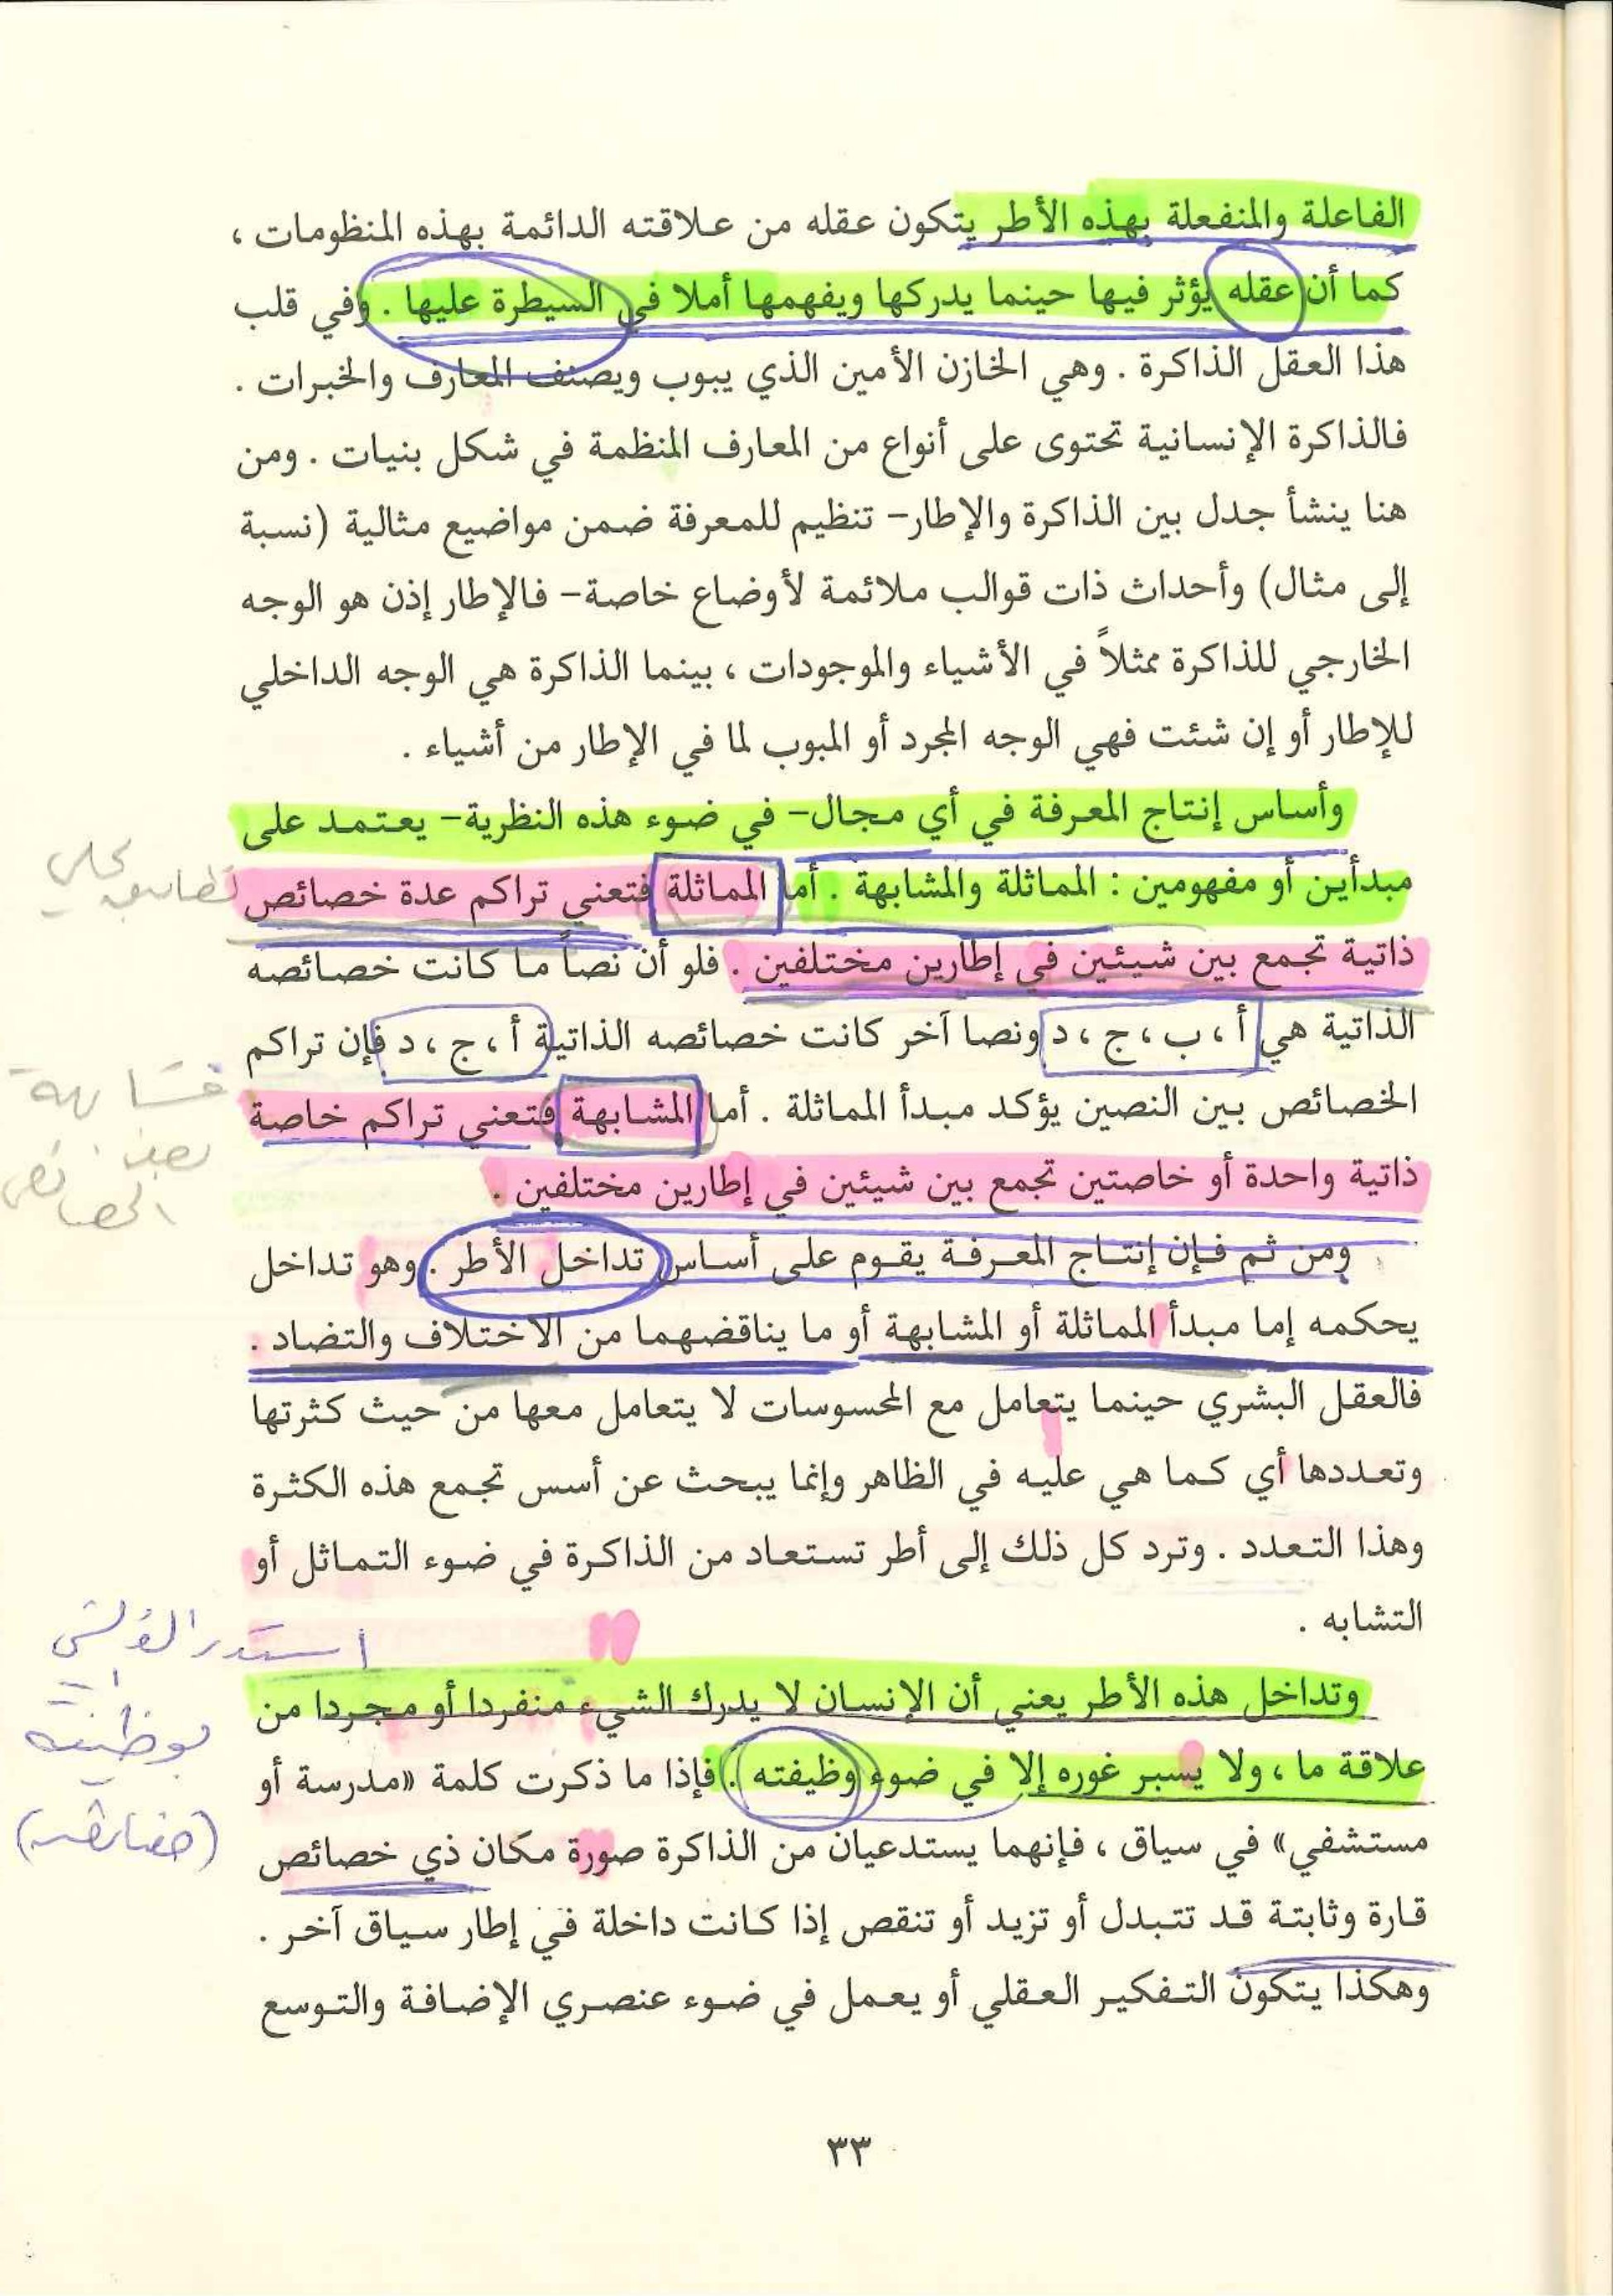 الفاعلة والمنفعلة بهذه الأطر يتكون عقله من علاقته الدائمة بهذه المنظومات ،
كما أن عقله يؤثر فيها حينما يدركها ويفهمها أملا في السيطرة عليها . وفي قلب
هذا العقل الذاكرة . وهي الخازن الأمين الذي يبوب ويصنف المعارف والخبرات .
فالذاكرة الإنسانية تحتوى على أنواع من المعارف المنظمة في شكل بنيات . ومن
هنا ينشأ جدل بين الذاكرة والإطار– تنظيم للمعرفة ضمن مواضيع مثالية (نسبة
إلى مثال) وأحداث ذات قوالب ملائمة لأوضاع خاصة– فالإطار إذن هو الوجه
الخارجي للذاكرة ممثلاً في الأشياء والموجودات ، بينما الذاكرة هي الوجه الداخلي
للإطار أو إن شئت فهي الوجه المجرد أو المبوب لما في الإطار من أشياء .
وأساس إنتاج المعرفة في أي مجال– في ضوء هذه النظرية– يعتمد على
مبدأين أو مفهومين : المماثلة والمشابهة . أما المماثلة فتعني تراكم عدة خصائص
تطابق كلي
ذاتية تجمع بين شيئين في إطارين مختلفين . فلو أن نصاً ما كانت خصائصه
الذاتية هي أ ، ب ، ج ، د ونصا آخر كانت خصائصه الذاتية أ ، ج ، د فإن تراكم
الخصائص بين النصين يؤكد مبدأ المماثلة . أما المشابهة فتعني تراكم خاصة
بعض
الخصائص
ذاتية واحدة أو خاصتين تجمع بين شيئين في إطارين مختلفين .
ومن ثم فإن إنتاج المعرفة يقوم على أساس تداخل الأطر . وهو تداخل
يحكمه إما مبدأ المماثلة أو المشابهة أو ما يناقضهما من الاختلاف والتضاد .
فالعقل البشري حينما يتعامل مع المحسوسات لا يتعامل معها من حيث كثرتها
وتعددها أي كما هي عليه في الظاهر وإنما يبحث عن أسس تجمع هذه الكثرة
وهذا التعدد . وترد كل ذلك إلى أطر تستعاد من الذاكرة في ضوء التماثل أو
التشابه .
وتداخل هذه الأطر يعني أن الإنسان لا يدرك الشيء منفردا أو مجردا من
علاقة ما ، ولا يسبر غوره إلا في ضوء وظيفته . فإذا ما ذكرت كلمة «مدرسة أو
بوظيفته
مستشفي» في سياق ، فإنهما يستدعيان من الذاكرة صورة مكان ذي خصائص
قارة وثابتة قد تتبدل أو تزيد أو تنقص إذا كانت داخلة في إطار سياق آخر .
وهكذا يتكون التفكير العقلي أو يعمل في ضوء عنصري الإضافة والتوسع
٣٣